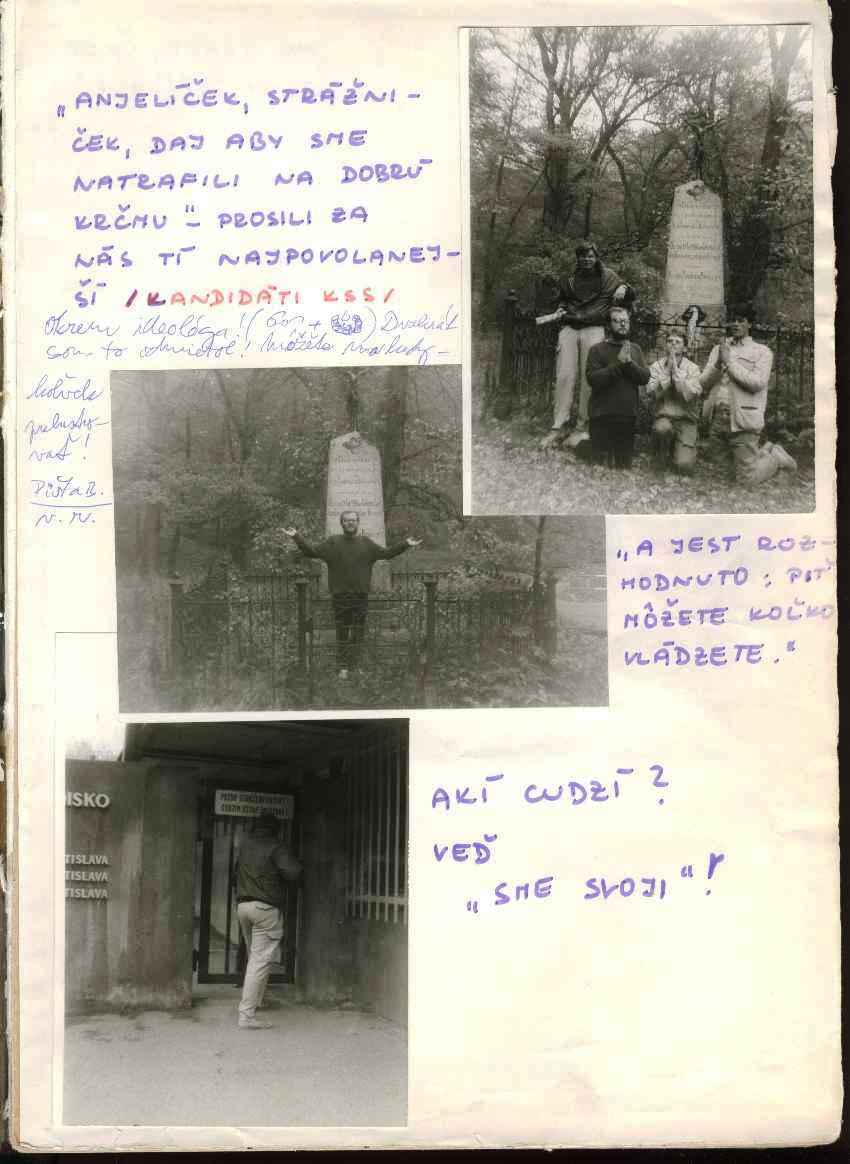 „ANJELÍČEK, STRÁŽNI-
ČEK, DAJ ABY SME
NATRAFILI NA DOBRÚ
KRČMU“ – PROSILI ZA
NÁS TÍ NAJPOVOLANEJ-
ŠÍ /KANDIDÁTI KSS/
Okrem ideológa! Dvakrát
som to odmietol! Môžete ma kedy-
koľvek
prelustro-
vať!
Pišta B.
v. r.
„A JEST ROZ-
HODNUTO: PIŤ
MÔŽETE KOĽKO
VLÁDZETE.“
DISKO
TISLAVA
TISLAVA
TISLAVA
AKÍ CUDZÍ?
VEĎ
„SME SVOJI“!